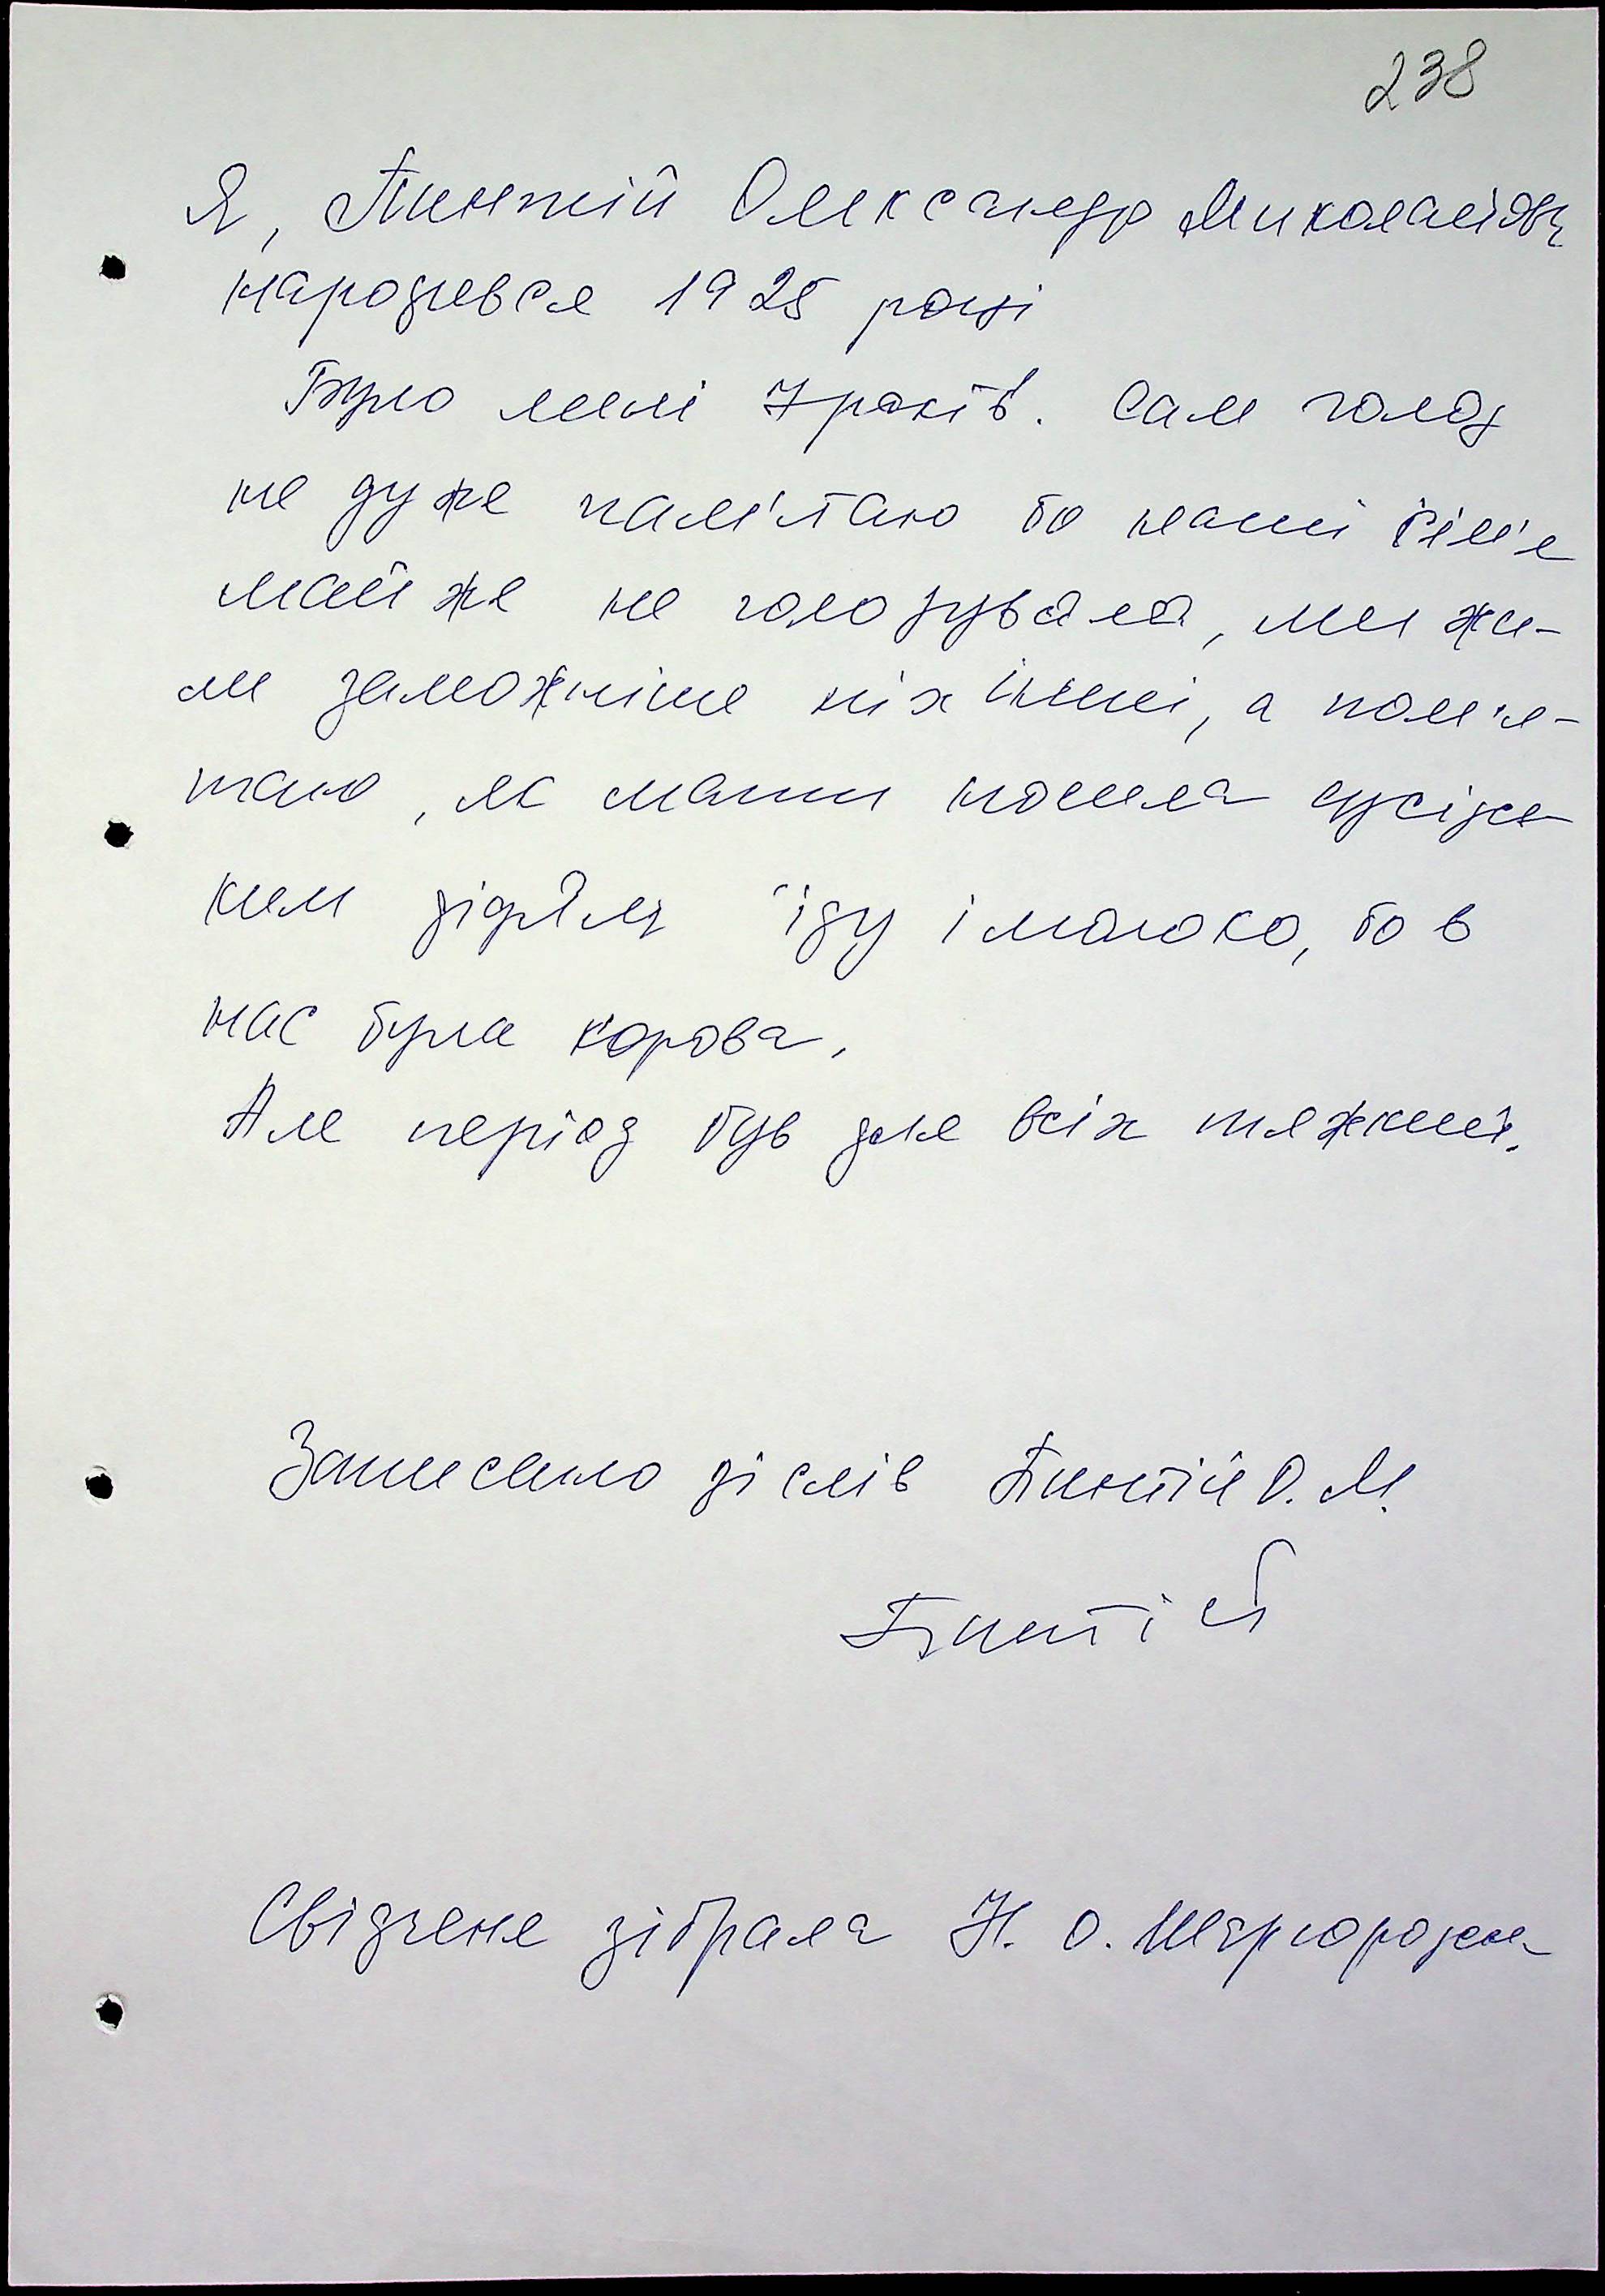 238
Я, Пинтій Олександр Миколайович
народився 1925 році
Було мені 7 років. Сам голод
не дуже пам'ятаю бо наші сім'я
майже не голодувала, ми жи-
ли заможніше ніх інші, а пом'я-
таю, як мати носила сусідсь-
ким дітям їду і молоко, бо в
нас була корова.
Але період був для всіх тяжкий.
Записано зі слів Бинтій О. М.
Бинтій
Свідчене зібрала Н. О.